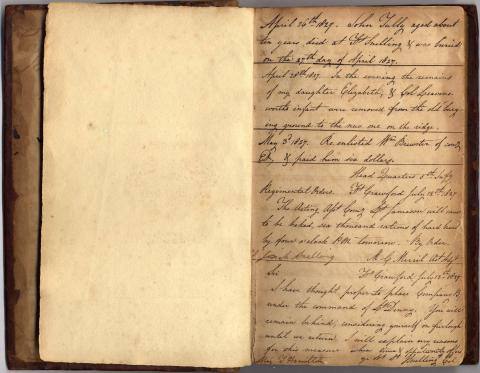 April 26th 1827. John Tully aged about
ten years, died at Ft Snelling & was buried
on the 27th day of April 1827.
April 28th 1827. In the evening the remains
of my daughter Elizabeth, & Col. Leavenworths infant were removed from the old burying ground to the new one on the ridge.
May 3d 1827. Re enlisted Wm Brewster of comp
& paid him six dollars.
Head Quarters 5th Infy
Regimental Orders. Ft Crawford July 12th 1827
The Acting Asst Comy Lt Jameson will cause
to be baked, six thousand rations of hard bread
by four o'clock P.M. tomorrow. By Order
Snelling M. E. Merrill Act Adjt
Sir Ft Crawford July 12th 1827
I have thought proper to place Company B
under the command of Lt Denny. You will
remain behind, considering yourself on furlough
until we return. I will explain my reasons
for this measure when time &
Hamilton Snelling